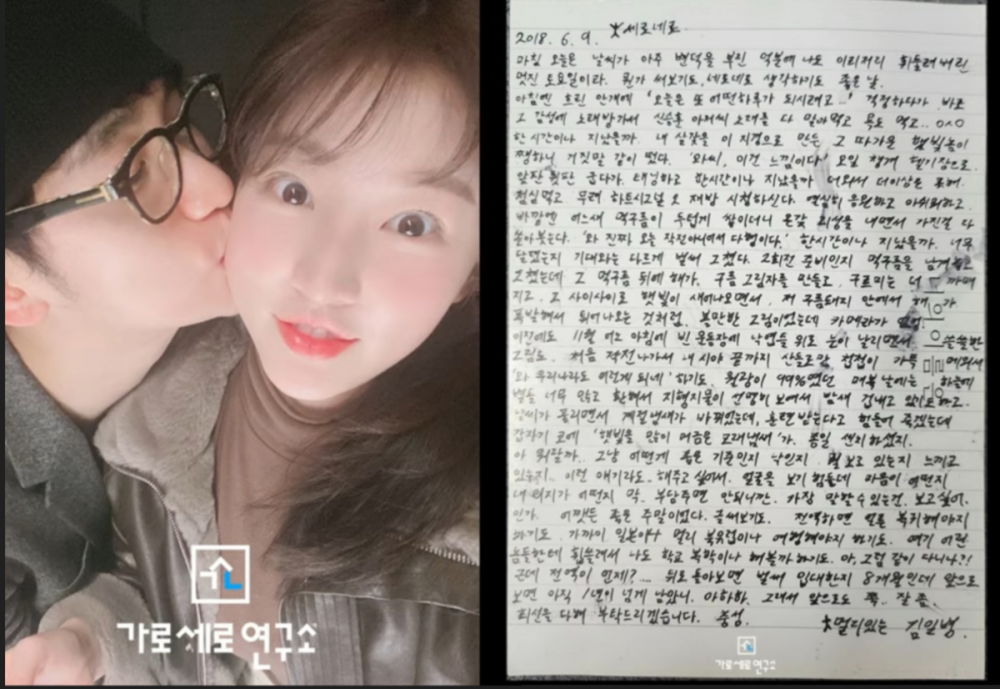 가로세로연구소
2018. 6. 9. 세로네로
마침 오늘은 날씨가 아주 변덕을 부린 덕분에 나도 이리저리 휘둘려버린
멋진 토요일이라. 뭔가 써보기도, 세로네로 생각하기도 좋은 날.
아침엔 흐린 안개에 '오늘은 또 어떤하루가 되시려고...' 걱정하다가, 바로
그 감성에 노래방가서 신승훈 아저씨 노래를 다 말아먹고 욕도 먹고..
한시간이나 지났을까 내 살갗을 이 지경으로 만든 그 따가운 햇빛놈이
쨍하니 거짓말 같이 떴다. '와씨, 이건 느낌이다' 오일 챙겨
앞판 뒷판 굽다가, 태닝하고 한시간이나 지났을까 더워서 더이상은 못해.
점심먹고 무려 하트시그널 2 재방 시청하신다. 열심히 응원하고 아쉬워하고.
바깥엔 어느새 먹구름이 두텁게 쌓이더니 온갖 괴성을 내면서 가진걸 다
쏟아붓는다. '와 진짜 오늘 작전아니여서 다행이다.' 한시간이나 지났을까. 너무
달렸는지 기대와는 다르게 벌써 그쳤다. 2회전 준비인지 먹구름을 남겨놓고
그쳤는데 그 먹구름 뒤에 해가, 구름 그림자를 만들고, 구르미는 더 까매
지고, 그 사이사이로 햇빛이 새어나오면서, 저 구름돼지 안에서 해 가
폭발해서 튀어나오는 것처럼. 볼만한 그림이었는데 카메라가 없
이런에도 11월 여 아침에 빈 운동장에 낙엽들 위로 눈이 날리면서 쓸쓸한
그림도, 처음 작전나가서 내 시야 끝까지 산들로만 첩첩이 가득 에워싸
'와 우리나라도 이렇게 되네' 하기도, 월광이 99%였던 매복 날에는 하늘에
별들 너무 많고 환해서 지형지물이 선명히 보여서 밤새 겁내고 있기도하고.
날씨가 풀리면서 계절냄새가 바뀌었는데, 훈련 받는다고 힘들어 죽겠는데
갑자기 코에 '햇빛을 많이 머금은 모래냄새'가. 통일 센치하셨지.
아 뭐랄까.. 그냥 어떤게 좋은 기준인지 낙인지 뭘 보고 있는지 느끼고
있는지. 이런 얘기라도 해주고 싶어서. 얼굴을 보기 힘든데 마음이 어떤지
내 의지가 어떤지 막 부담주면 안되니깐. 가장 말할수있는건, 보고싶어.
인가. 어쨌든 좋은 주말이었다. 글써보기도. 전역하면 얼른 복귀해야지
하기도, 가까이 일본이나 멀리 북유럽이나 여행해야지 하기도. 여기 어린
놈들한테 휩쓸려서 나도 학교 복학이나 해볼까 하기도. 아, 그럼 같이 다니나?!
근데 전역이 언제?.... 뒤로 돌아보면 벌써 입대한지 8개월인데 앞으로
보면 아직 1년이 넘게 남았네. 아하하. 그래서 앞으로도 쭉 잘 좀.
최선을 다해 부탁드리겠습니다. 충성.
멀리있는 김일병.
가로세로연구소